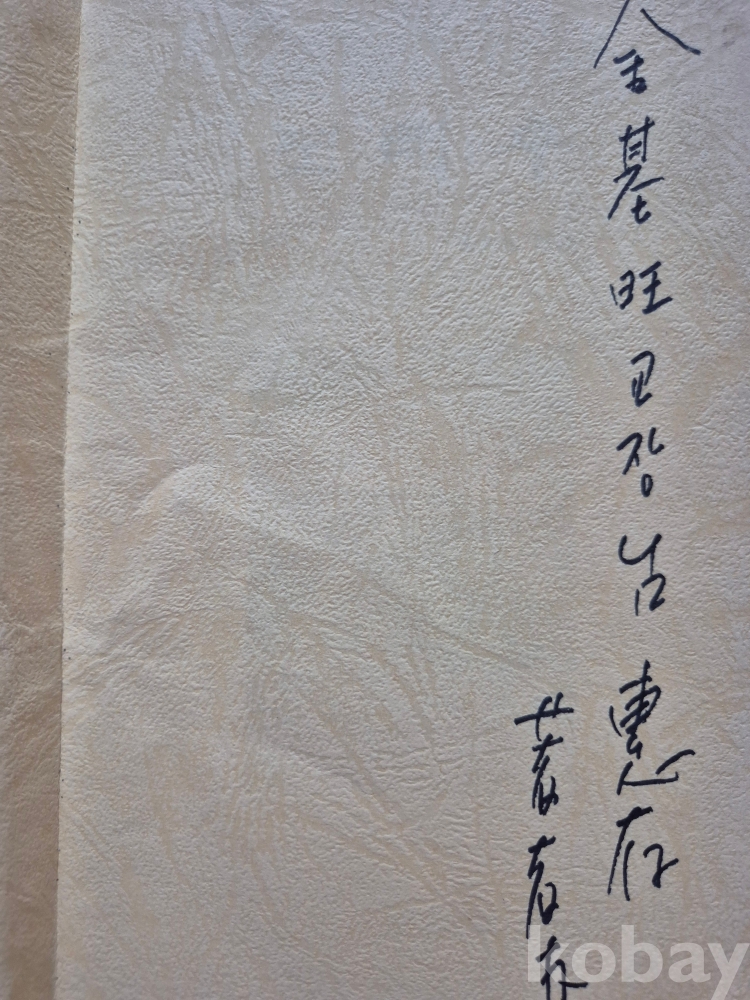 金基旺교장님 惠存
kobay